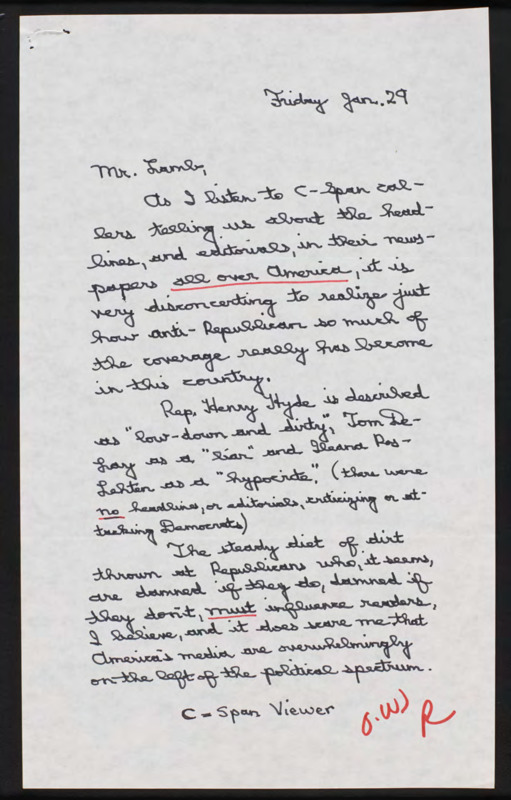 Friday Jan. 29
Mr. Lamb,
As I listen to C-Span cal-
lers telling us about the head-
lines, and editorials, in their news-
papers all over America, it is
very disconcerting to realize just
how anti-Republican so much of
the coverage really has become
in this country.
Rep. Henry Hyde is described
as "low-down and dirty", Tom De-
Lay as a "liar" and Ileana Ros-
Lehten as a "hypocrite." (there were
no headlines, or editorials, criticizing or at-
tacking Democrats)
The steady diet of dirt
thrown at Republicans who, it seems,
are damned if they do, damned if
they don't, must influence readers,
I believe, and it does scare me that
America's media are overwhelmingly
on the left of the political spectrum.
C-Span Viewer
R